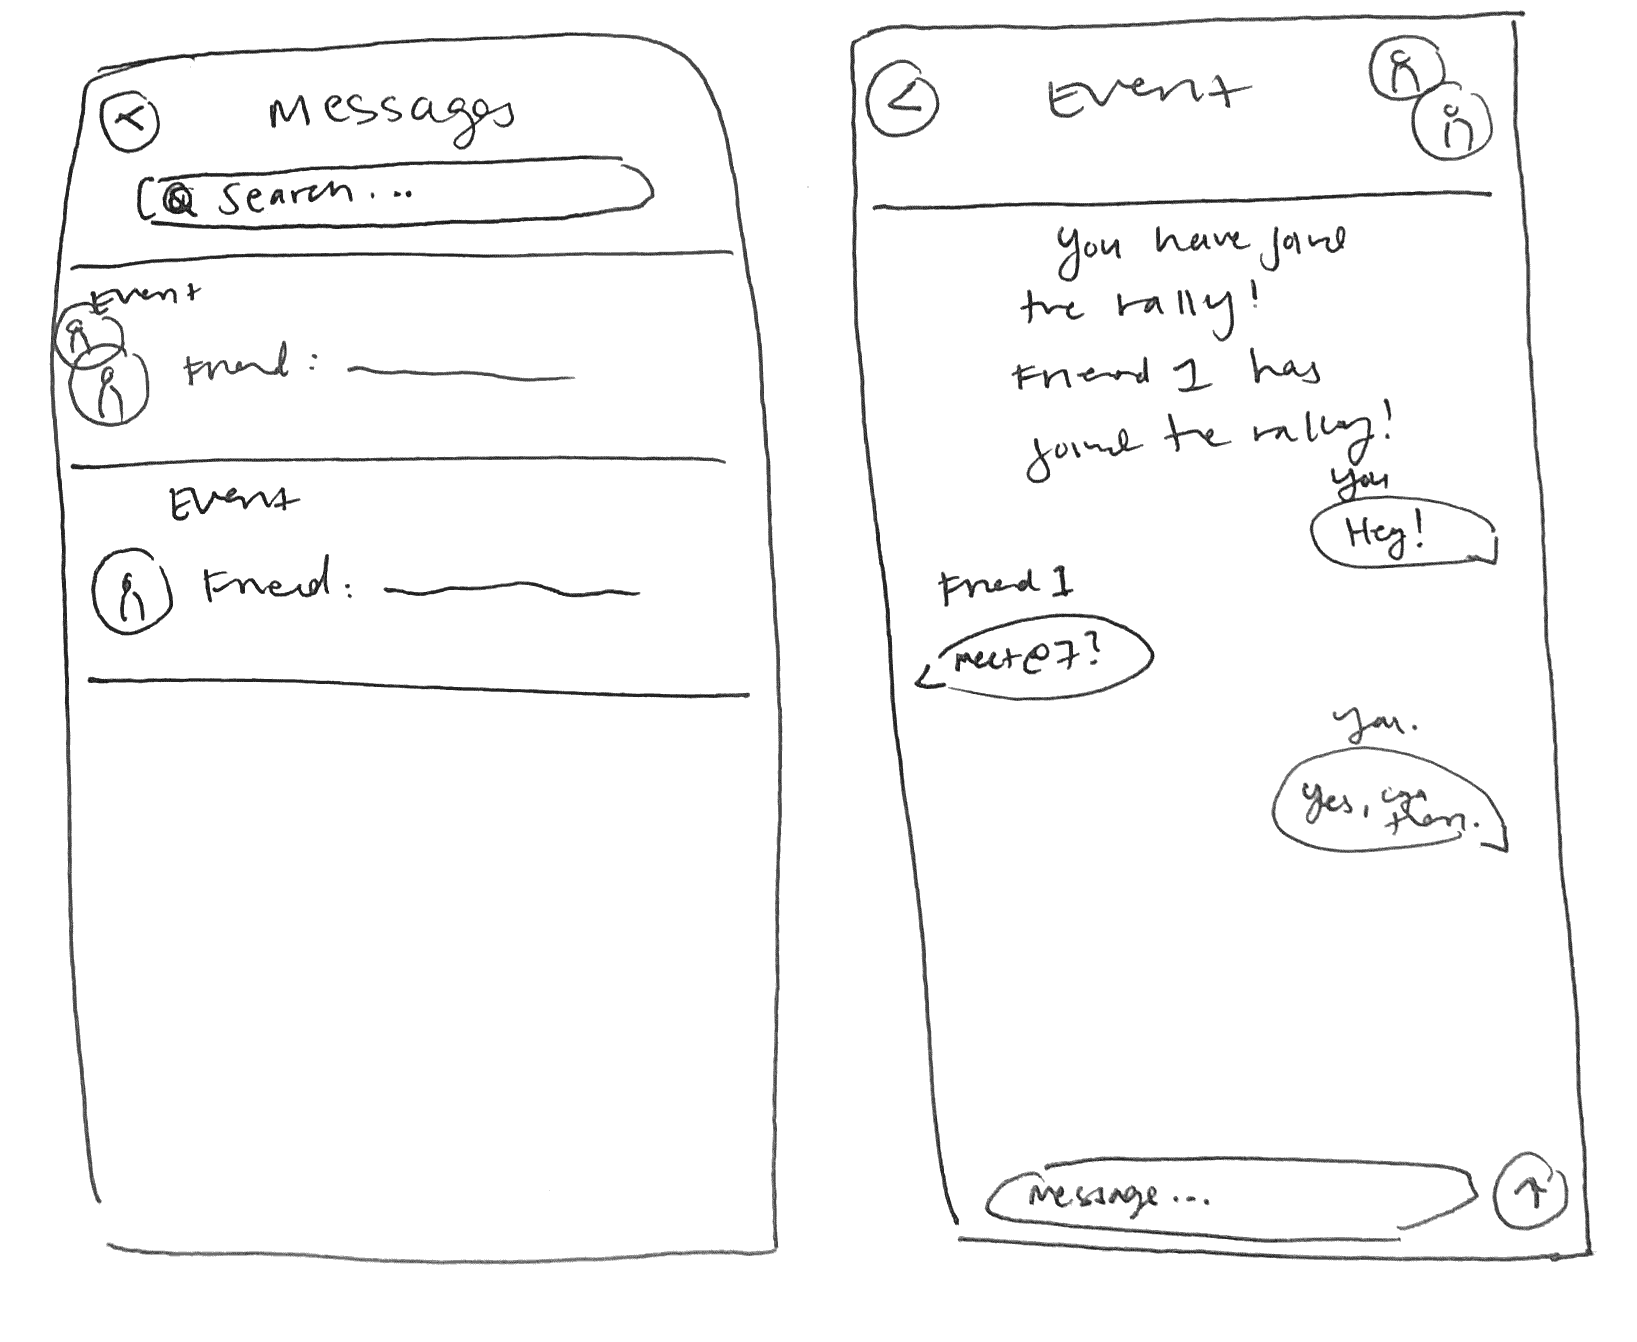 Messages
Search...
Event
Friend:
Event
Friend:
Event
You have joined
the rally!
Friend 1 has
joined the rally!
You
Hey!
Friend 1
meet@7?
You.
Yes,
Message...